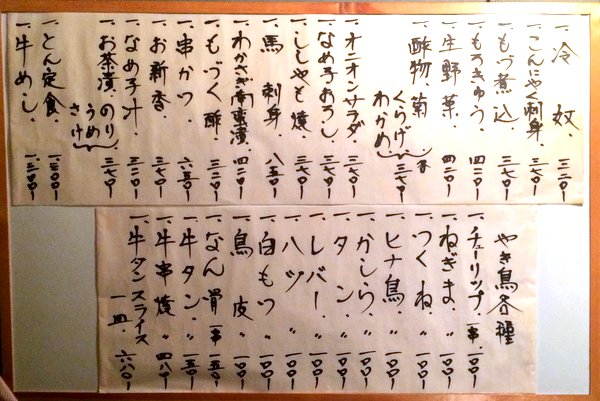 一、冷奴、三二〇-
一、こんにゃく刺身、三七〇-
一、もつ煮込、三七〇-
一、もろきゅう、四二〇-
一、生野菜、四二〇-
一、酢物、菊、くらげ、わかめ 各三七〇-
一、オニオンサラダ、三七〇-
一、なめ子おろし、三七〇-
一、ししゃも焼、三七〇-
一、馬刺身、八五〇-
一、わかさぎ南蛮漬、四二〇-
一、もづく酢、三二〇-
一、串かつ、六五〇-
一、お新香、三二〇-
一、なめ子汁、三二〇-
一、お茶漬、のり、うめ、さけ 三七〇-
一、とん定食、一、三〇〇-
一、牛めし、一、三〇〇-
やき鳥各種
一、チューリップ、一串、一〇〇-
一、ねぎま、〃一〇〇-
一、つくね、〃一〇〇-
一、ヒナ鳥、〃一〇〇-
一、かしら、〃一〇〇-
一、タン、〃一〇〇-
一、レバー、〃一〇〇-
一、ハツ、〃一〇〇-
一、白もつ〃一〇〇-
一、鳥皮、〃一〇〇-
一、なん骨一串一五〇-
一、牛タン、〃一五〇-
一、牛串焼、〃四八〇-
一、牛タンスライス一皿、六八〇-